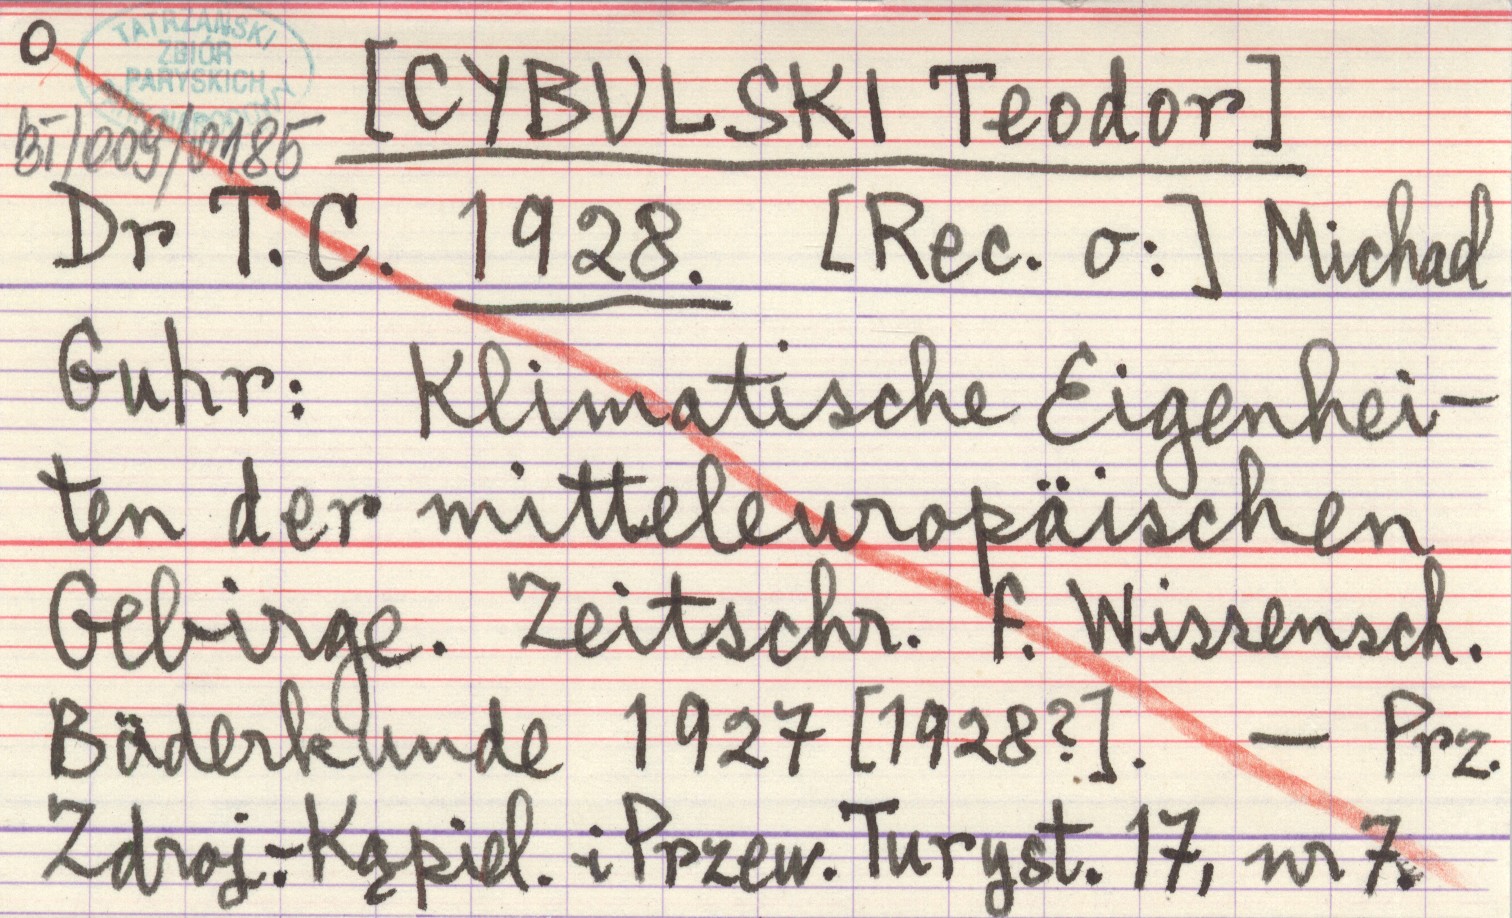 O
TATRZAŃSKI
ZBIÓR
PARYSKICH
BI/009/0185
[CYBULSKI Teodor]
Dr T.C. 1928. [Rec. o:] Michael
Guhr: Klimatische Eigenhei-
ten der mitteleuropäischen
Gebirge. Zeitschr. f. Wissensch.
Bäderkunde 1927 [1928?]. — Prz.
Zdroj.-Kąpiel. i Przew. Turyst. 17, nr 7.